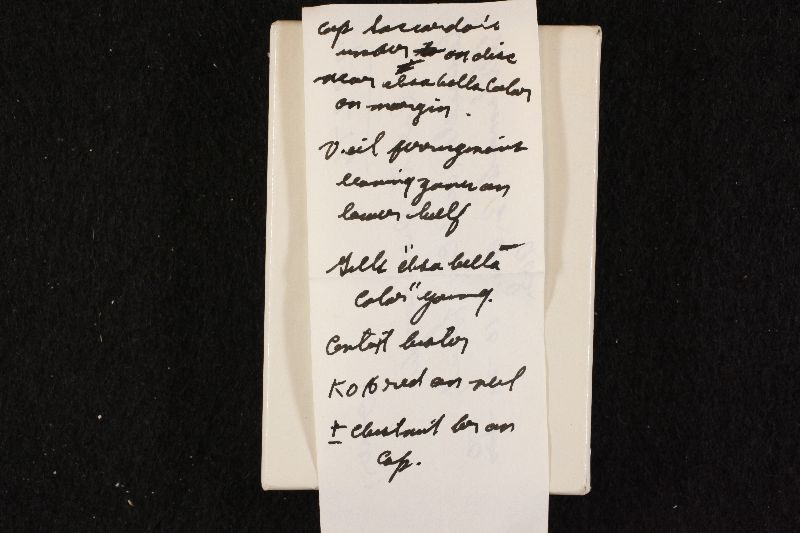 cap
under on disc
near "isabella color
on margin.
Veil ferruginous
leaving zones on
lower half
Gills "isabella
color" young.
Context
KOH red on veil
± chestnut br on
cap.